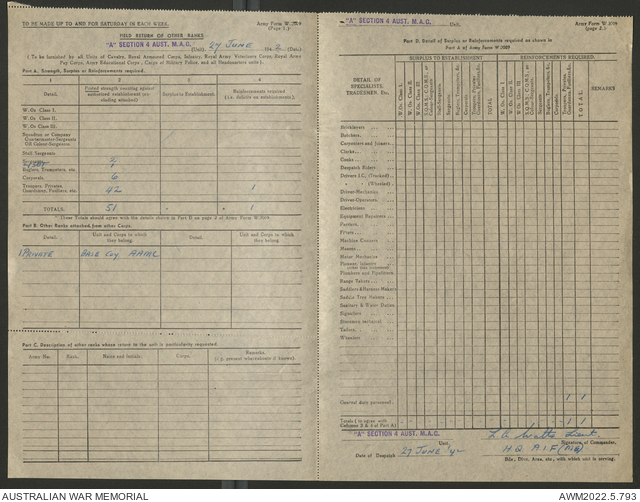 TO BE MADE UP TO AND FOR SATURDAY IN EACH WEEK.
Army Form W.3009
(Page 1.)
FIELD RETURN OF OTHER RANKS.
"A" SECTION 4 AUST. M.A.C. (Unit). 27 JUNE 1942 (Date).
(To be furnished for all Units of Cavalry, Royal Armoured Corps, Infantry, Royal Army Veterinary Corps, Royal Army
Pay Corps, Army Educational Corps, Corps of Military Police, and all Headquarters units).
Part A. Strength, Surplus or Reinforcements required.
1 2 3 4
Detail.
Posted strength counting against authorized establishment (excluding attached)
Surplus to Establishment.
Reinforcements required (i.e. deficits on establishment)
W. Os Class I.
W. Os Class II.
W. Os Class III.
Squadron or Company
Quartermaster-Sergeants
OR Colour-Sergeants
Staff-Sergeants
2
1
Buglers, Trumpeters, etc.
Corporals 6
Troopers, Privates,
Guardsmen, Fusiliers, etc. 42 1
TOTALS. 51 1
*These Totals should agree with the details shown in Part D on page 2 of Army Form W.3009
Part B. Other Ranks attached from other Corps.
Detail.
Unit and Corps to which they belong.
Detail.
Unit and Corps to which they belong.
1 PRIVATE BASE Coy AAMC
Part C. Description of other ranks whose return to the unit is particularly requested.
Army No. Rank. Name and Initials. Corps. Remarks.
(i.e. present whereabouts if known).
"A" SECTION 4 AUST. M.A.C. Unit.
Army Form W.3009
(page 2.)
Part D. Detail of Surplus or Reinforcements required as shown in
Part A of Army Form W.3009
DETAIL OF SPECIALISTS, TRADESMEN, Etc.
SURPLUS TO ESTABLISHMENT
REINFORCEMENTS REQUIRED
REMARKS
W. Os. Class I.
W. Os. Class II
W. Os. Class III
Staff-Sergeants
Sergeants
TOTAL
TOTAL
Bricklayers
Butchers
Carpenters and Joiners
Clerks
Cooks
Despatch Riders
Drivers I.C. (Tracked)
" (Wheeled)
Driver-Mechanics
Driver-Operators
Electricians
Equipment Repairers
Farriers
Fitters
Machine Gunners
Masons
Motor Mechanics
Pioneers, Infantry
Plumbers and Pipefitters
Range Takers
Saddlers & Harness Makers
Saddle Tree Makers
Sanitary & Water Duties
Signallers
Storemen, technical
Tailors
Wheelers
General duty personnel 1 1
Totals (to agree with
Columns 3 & 4 of Part A) 1 1
"A" SECTION 4 AUST. M.A.C. Unit.
Lieut.
Signature of Commander.
Date of Despatch 27 JUNE 42
H.Q A.I.F (M.E)
Bde., Divn. Area, etc., with which unit is serving.
AUSTRALIAN WAR MEMORIAL
AWM2022.5.793